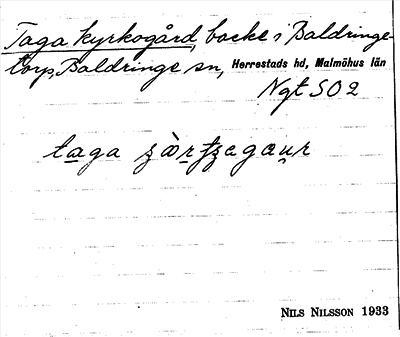 Taga kyrkogård, backe i Baldringe-
torp, Baldringe sn, Herrestads hd, Malmöhus län
Ngt SO 2
NILS NILSSON 1933